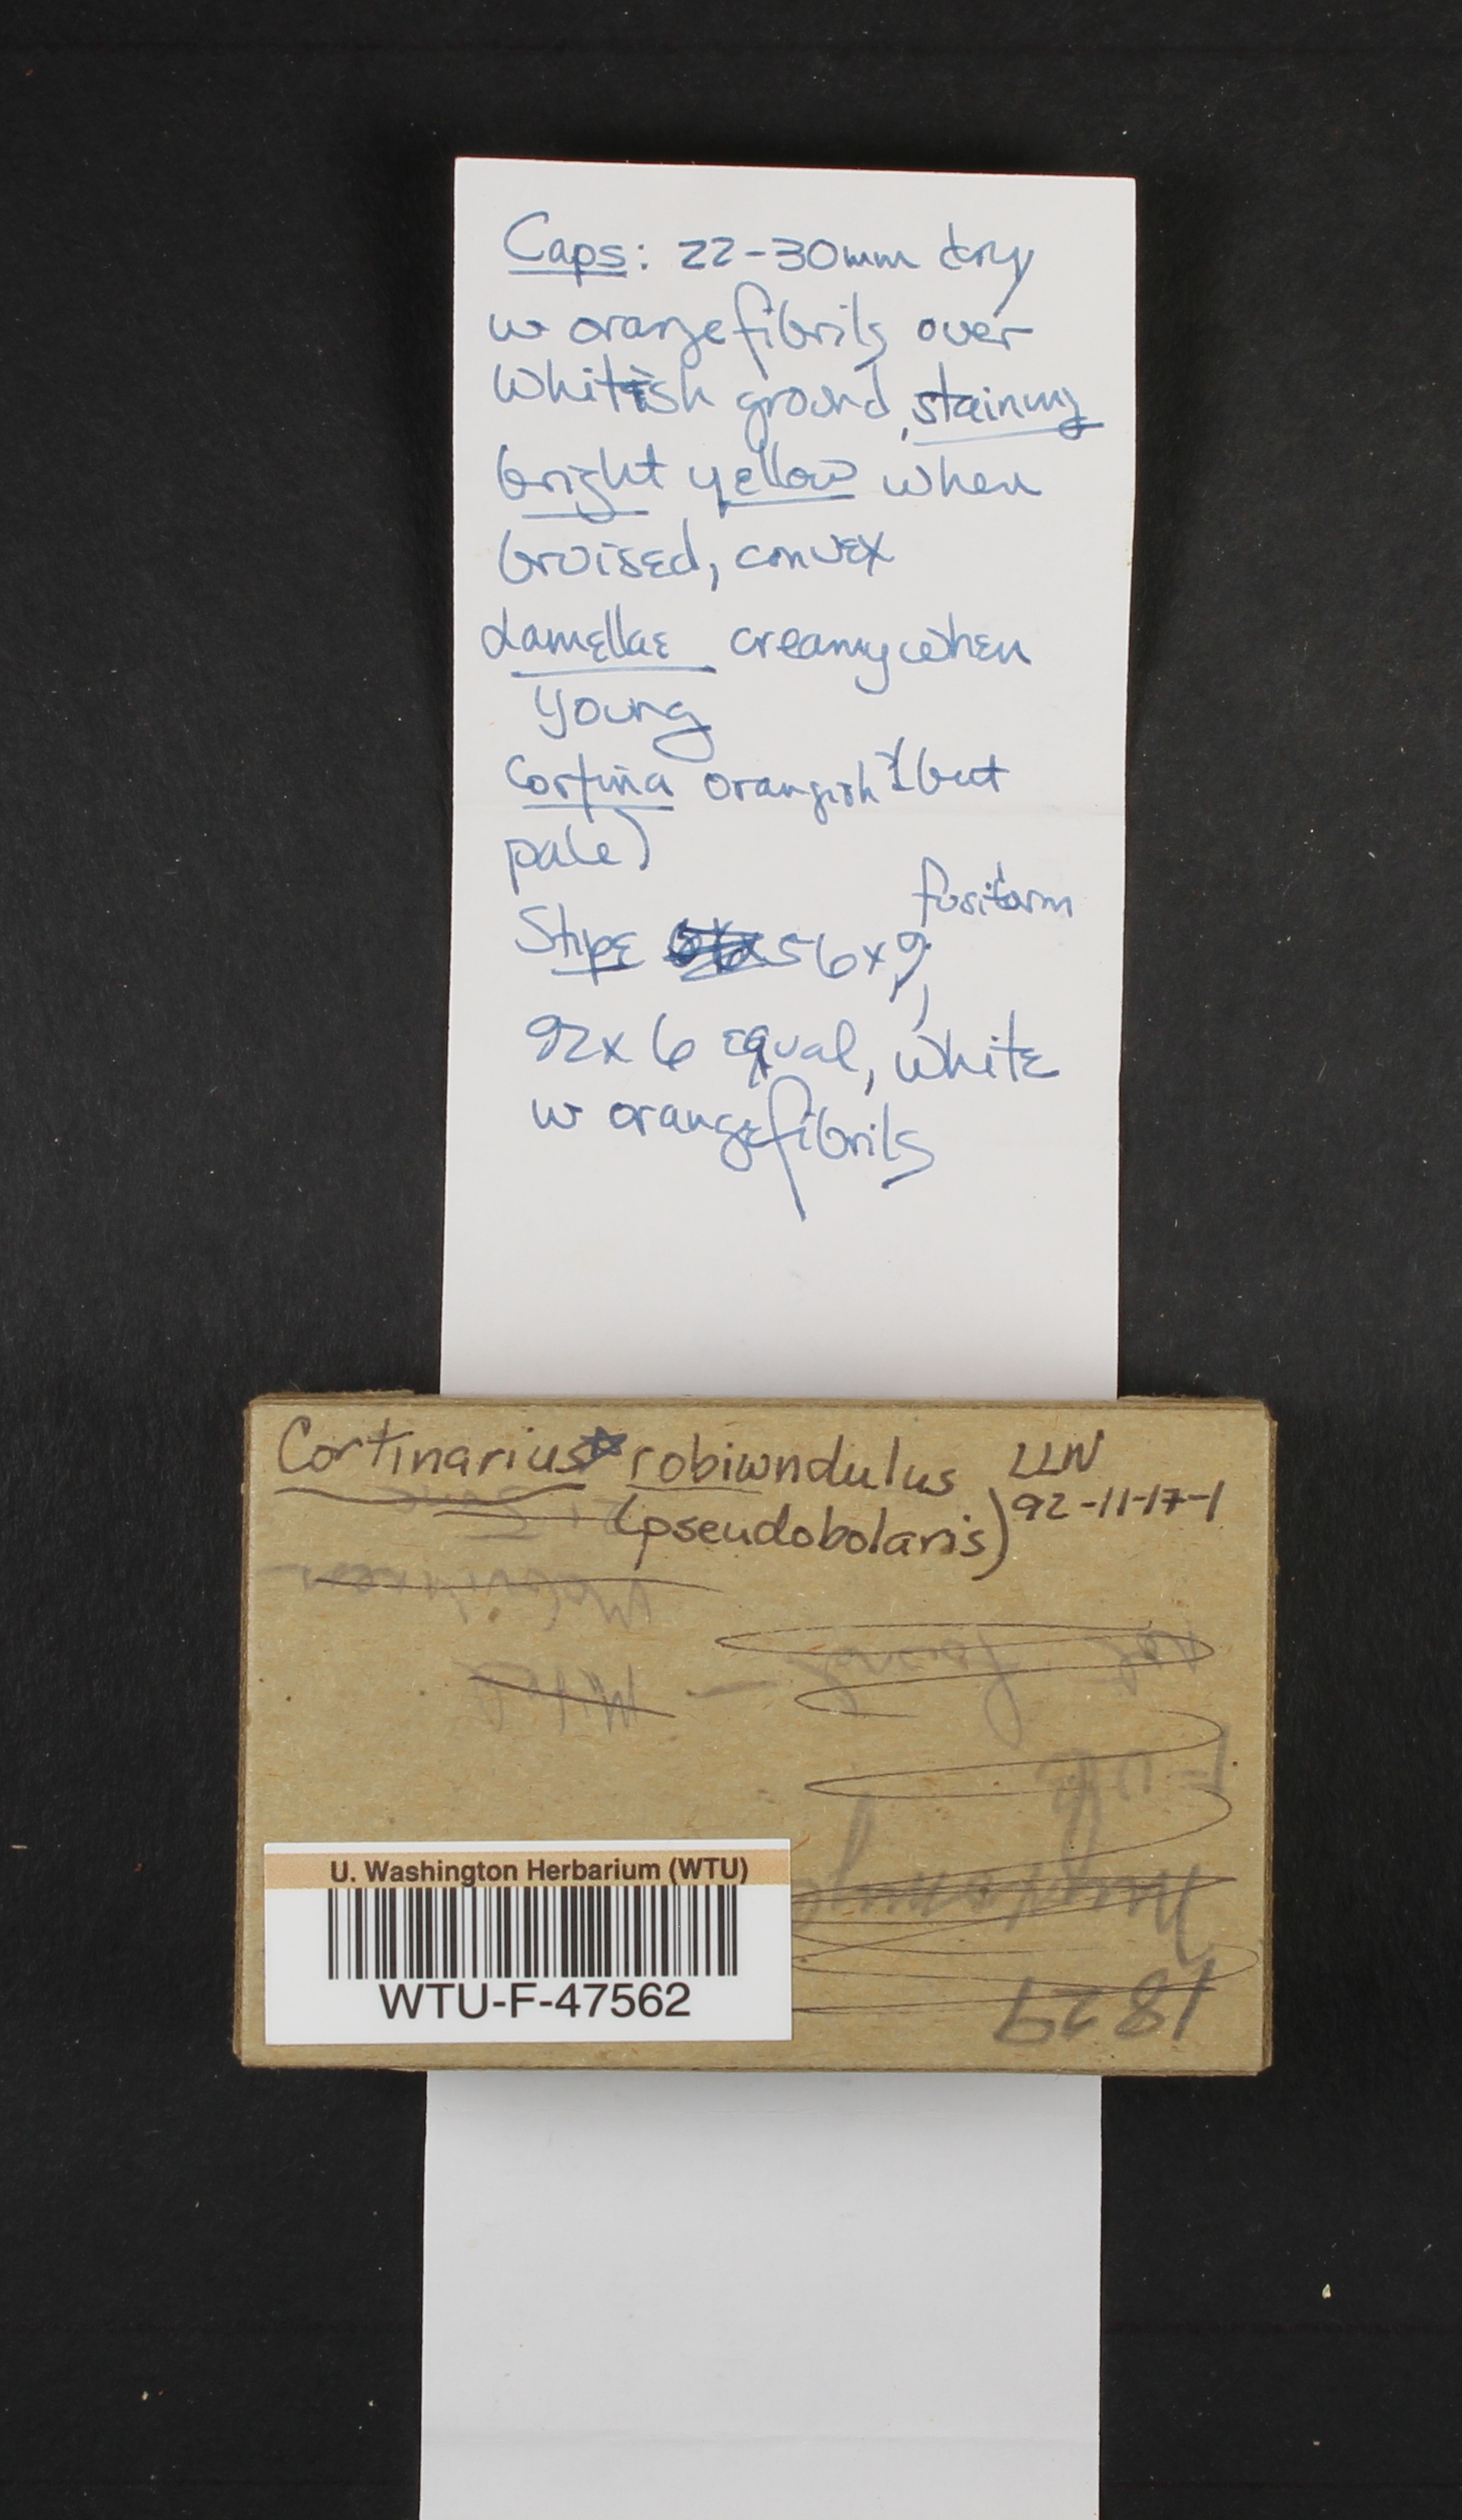 Caps: 22-30mm dry
w orange fibrils over
whitish ground, staining
bright yellow when
bruised, convex
Lamellae creamy when
young
Cortina orangish (but
pale)
fusiform
Stipe 56x9,
92x6 equal, white
w orange fibrils
Cortinarius robiwndulus LLN
(pseudobolaris) 92-11-17-1
not found
1829
U. Washington Herbarium (WTU)
WTU-F-47562